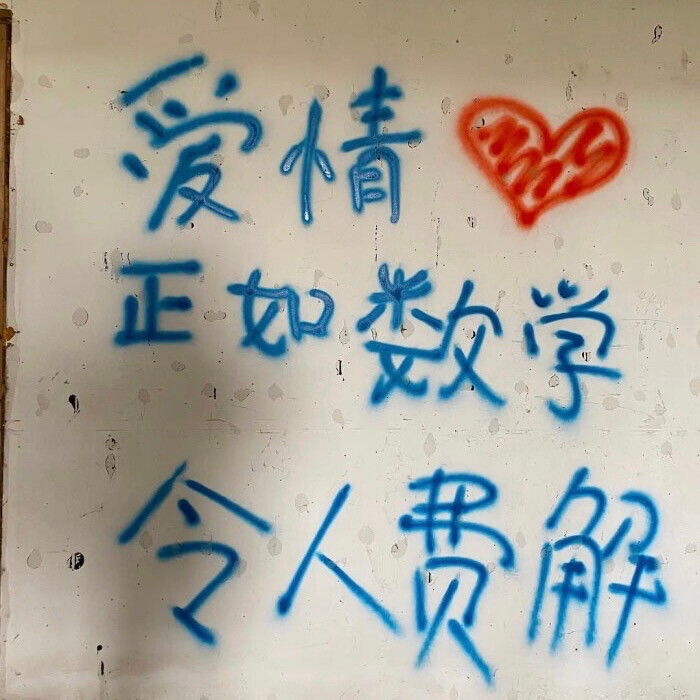 爱情
正如数学
令人费解